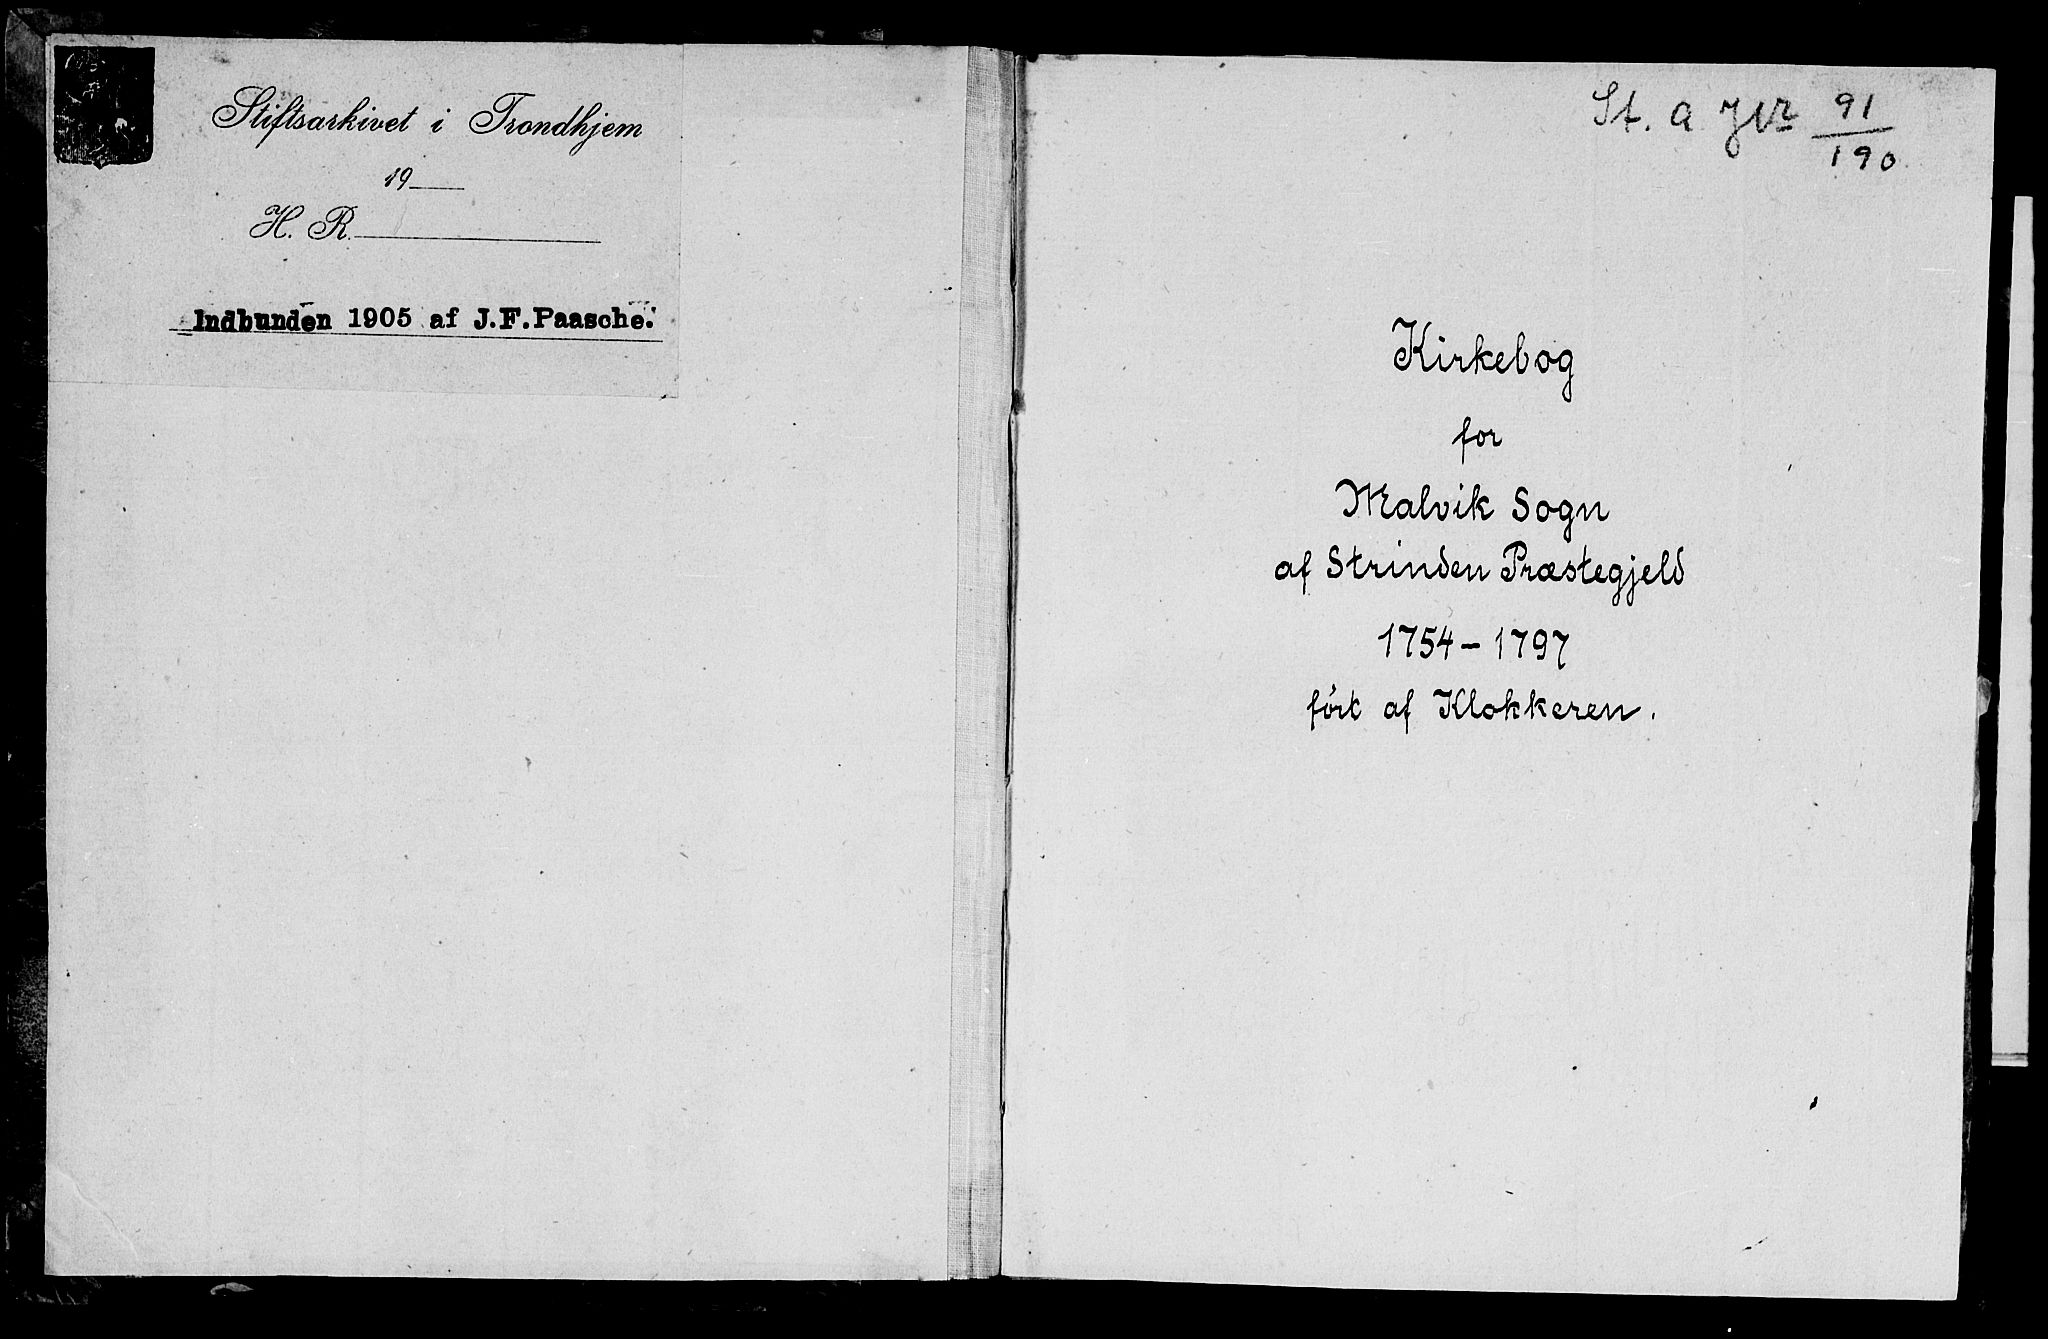 Stiftsarkivet i Trondhjem
19
H. R.
Indbunden 1905 af J.F.Paasche.
St. a Nr 91/190
Kirkebog
for
Malvik Sogn
af Strinden Præstegjeld
1754 – 1797
ført af Klokkeren.